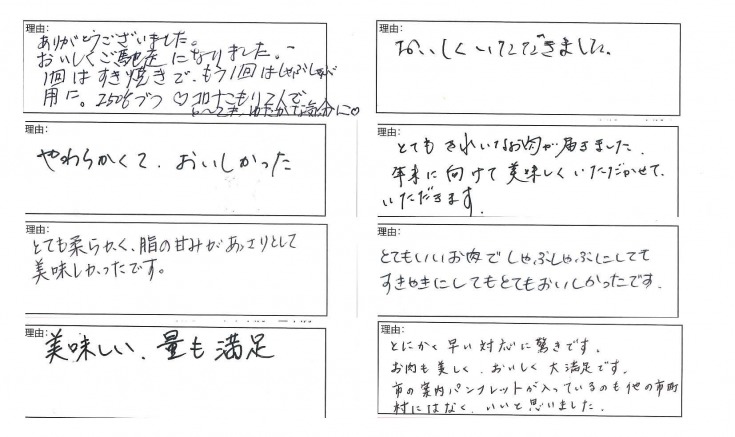 理由:
ありがとうございました。
おいしくご馳走になりました。
1回はすき焼きで、もう1回はしゃぶしゃぶ
用に。250gづつ♡コロナこもりで
ゆたかな気分に♡
理由:
やわらかくて、おいしかった
理由:
とても柔らかく、脂の甘みがあっさりとして
美味しかったです。
理由:
美味しい、量も満足
理由:
おいしくいただきました。
とてもきれいなお肉が届きました.
年末に向けて美味しくいただかせて、
いただきます.
理由:
とてもいいお肉でしゃぶしゃぶにしても
すきやきにしてもとてもおいしかったです.
理由:
とにかく早い対応に驚きです.
お肉も美しく、おいしく大満足です.
市の案内パンフレットが入っているのも他の市町
村にはなく、いいと思いました.